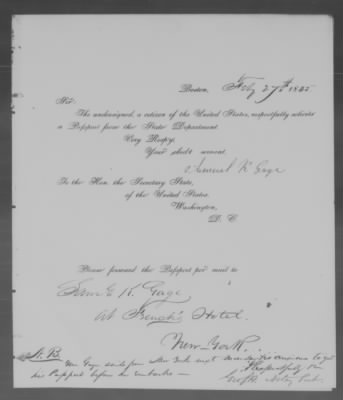 Boston, Feby 27th 1855
Sir.
The undersigned, a citizen of the United States, respectfully solicits
a Passport from the State Department.
Very Resp'y,
Your obdt servant.
Samuel K Gage
To the Hon. the Secretary State,
of the United States.
Washington,
D. C.
Please forward the Passport per mail to
Saml K. Gage
at French's Hotel.
New York.
N. B.
Mr Gage sails from New York next
his Passport before he embarks